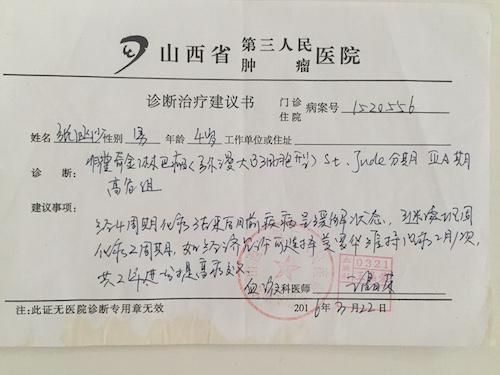 山西省 第三人民 肿瘤 医院
诊断治疗建议书 门诊 住院 病案号 1520556
姓名 性别 男 年龄 4岁 工作单位或住址
诊 断: 淋巴瘤(弥漫大B细胞型) St. Jude分期 III A期
高危组
建议事项: 经4周期化疗结束后目前疾病呈缓解状态,
化疗2周期, 如经济允许可选择美罗华维持治疗2月/次,
共2年进一步提高疗效
科医师
0321
注: 此证无医院诊断专用章无效 2016年3月22日